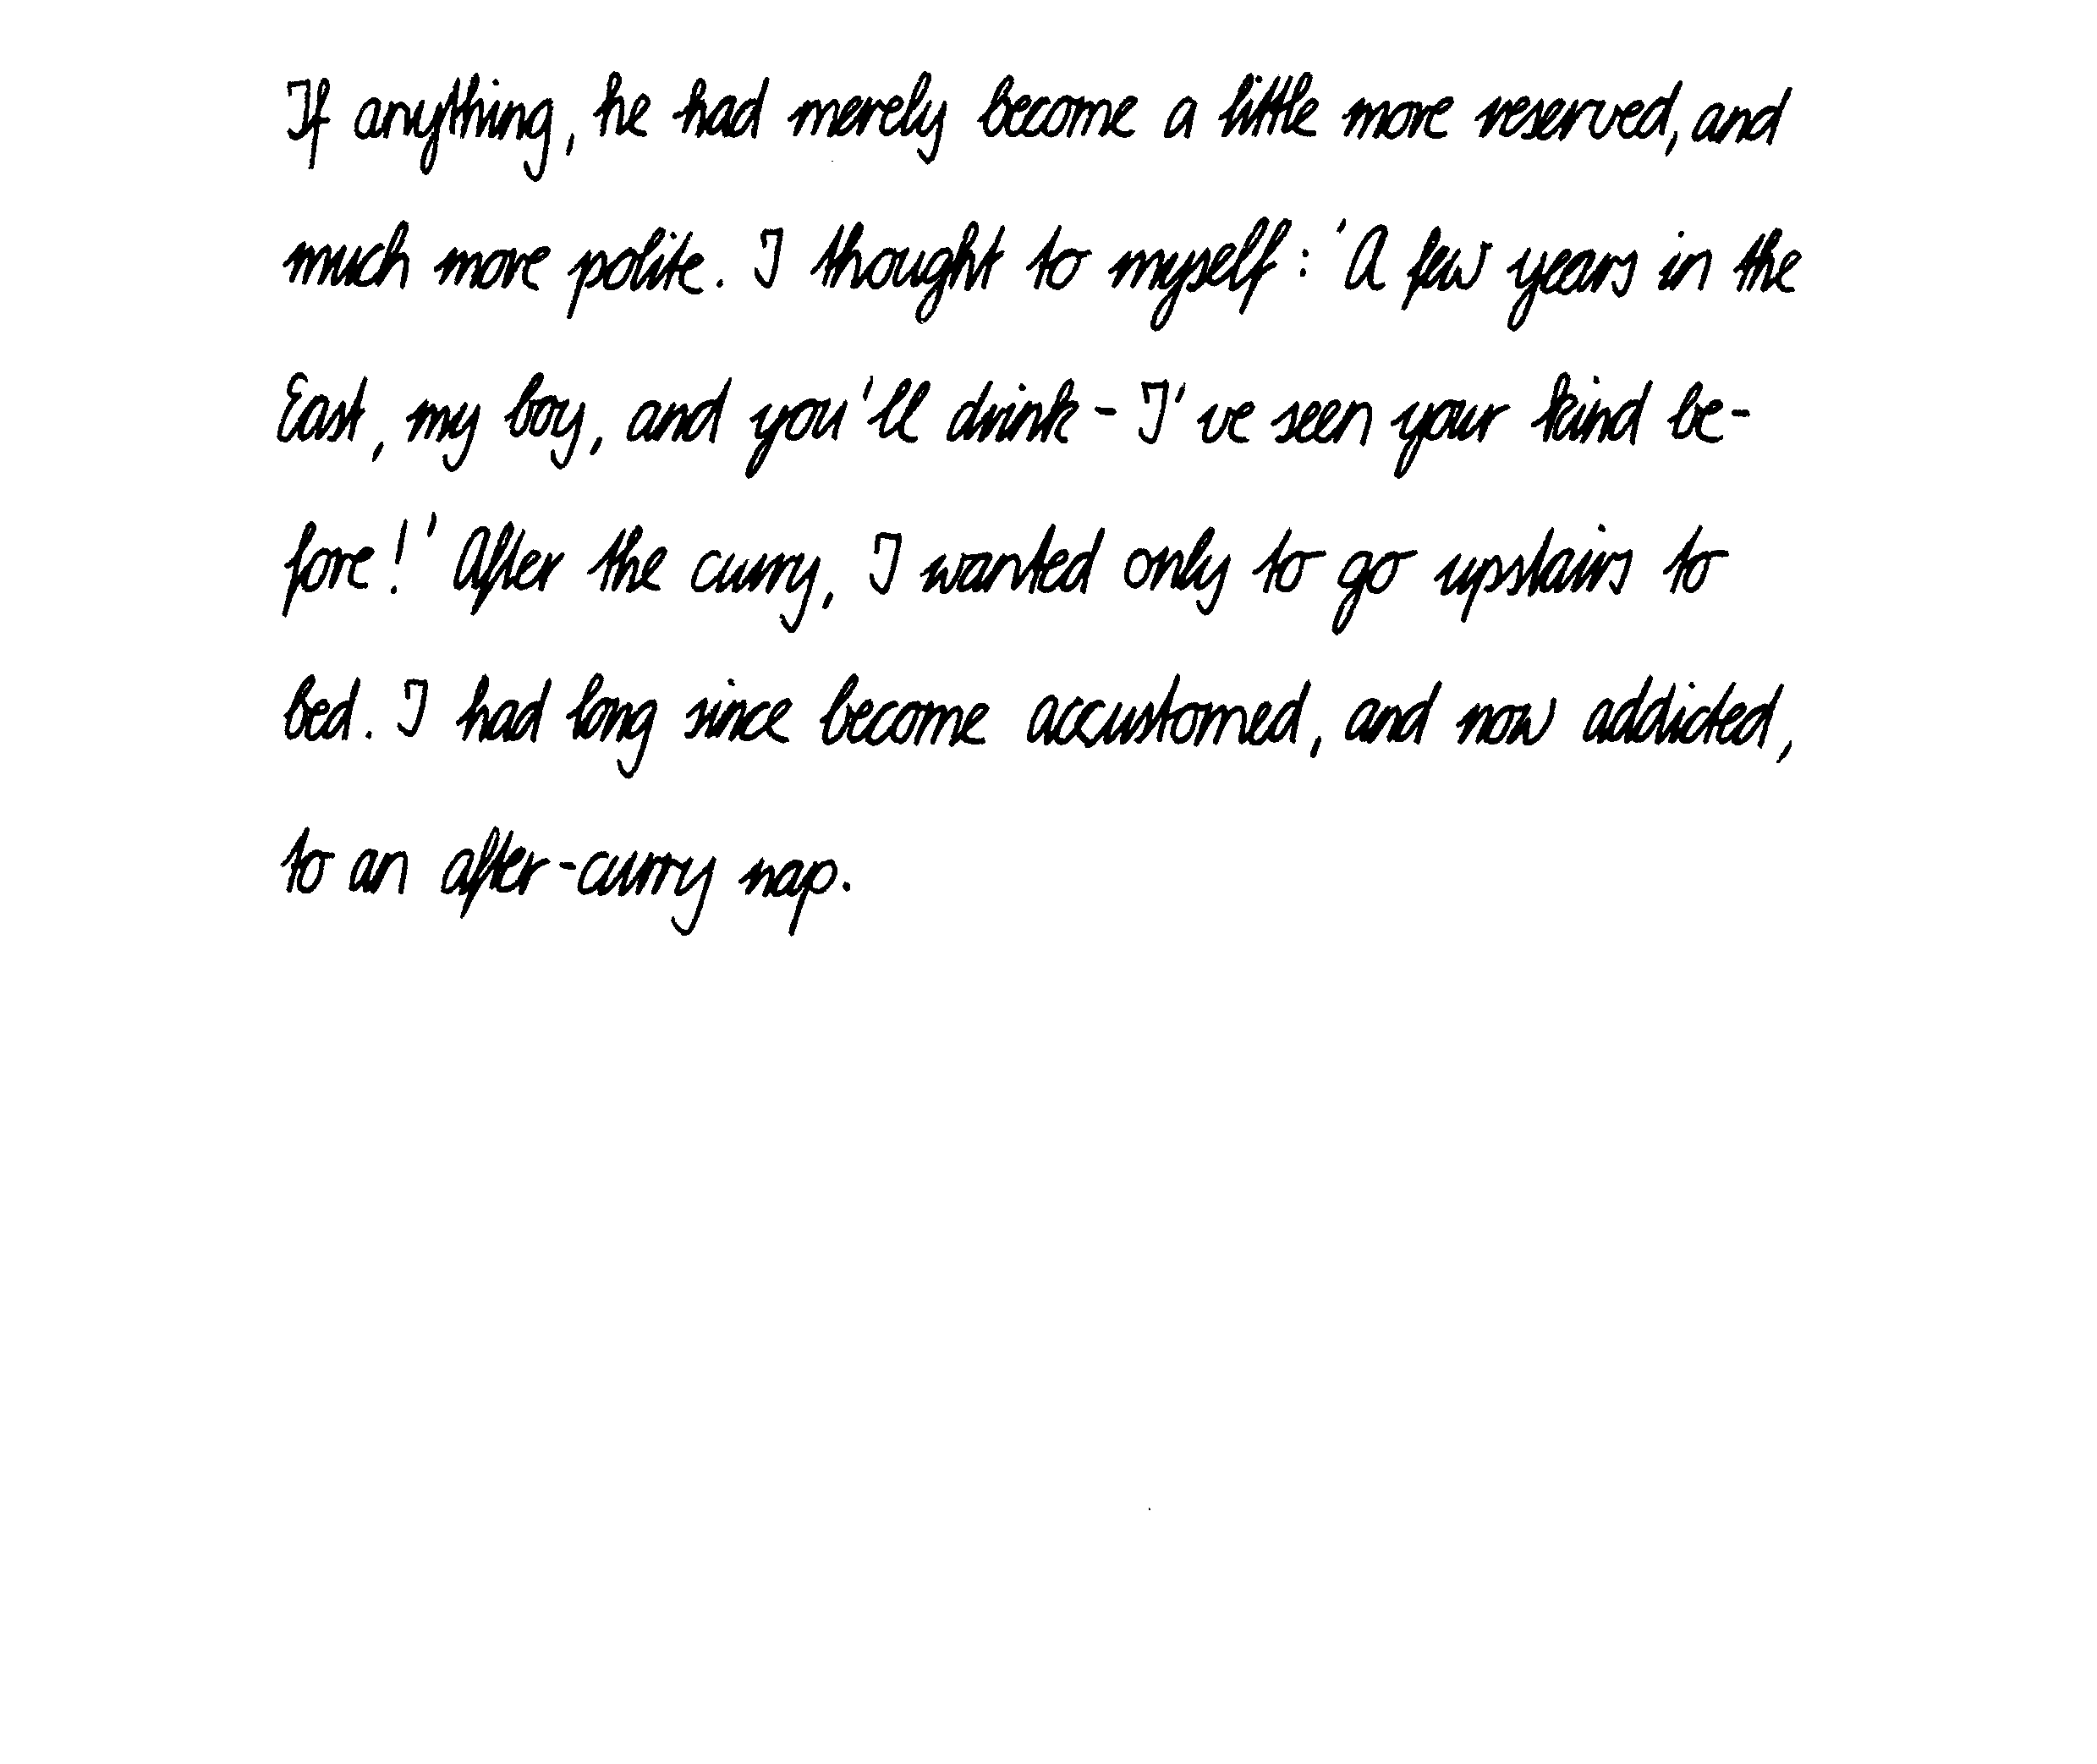 If anything, he had merely become a little more reserved, and
much more polite. I thought to myself: 'A few years in the
East, my boy, and you'll drink - I've seen your kind be-
fore!' After the curry, I wanted only to go upstairs to
bed. I had long since become accustomed, and now addicted,
to an after-curry nap.